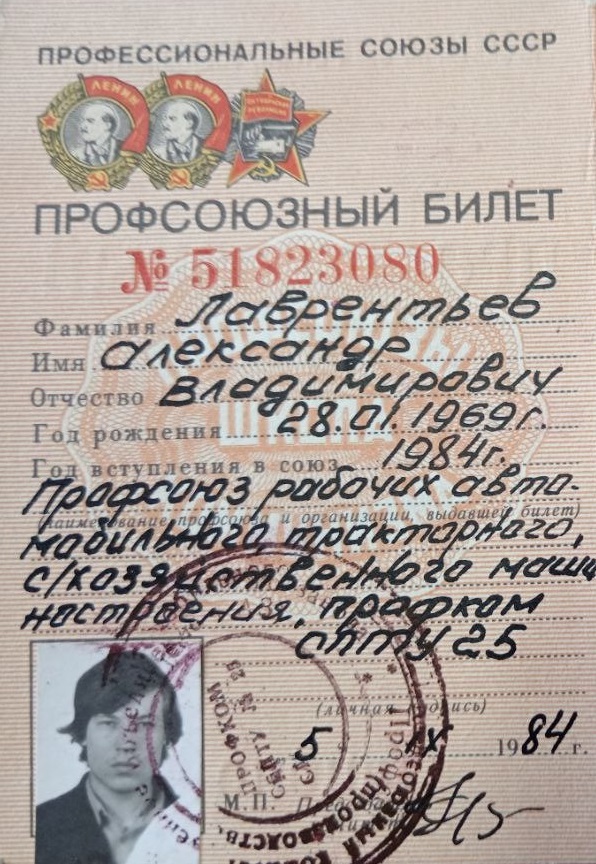 ПРОФЕССИОНАЛЬНЫЕ СОЮЗЫ СССР
ЛЕНИН ЛЕНИН ОКТЯБРЬСКАЯ РЕВОЛЮЦИЯ
ПРОФСОЮЗНЫЙ БИЛЕТ
№ 51823080
Фамилия Лаврентьев
Имя Александр
Отчество Владимирович
Год рождения 28.01.1969г.
Год вступления в союз 1984г.
Профсоюз рабочих авто-
(наименование профсоюза и организации, выдавшей билет)
мобильного, тракторного,
с/хозяйственного маши
ностроения, профком
СПТУ 25
(личная подпись)
5 IX 1984 г.
М.П.
ПРОФКОМ
СПТУ № 25